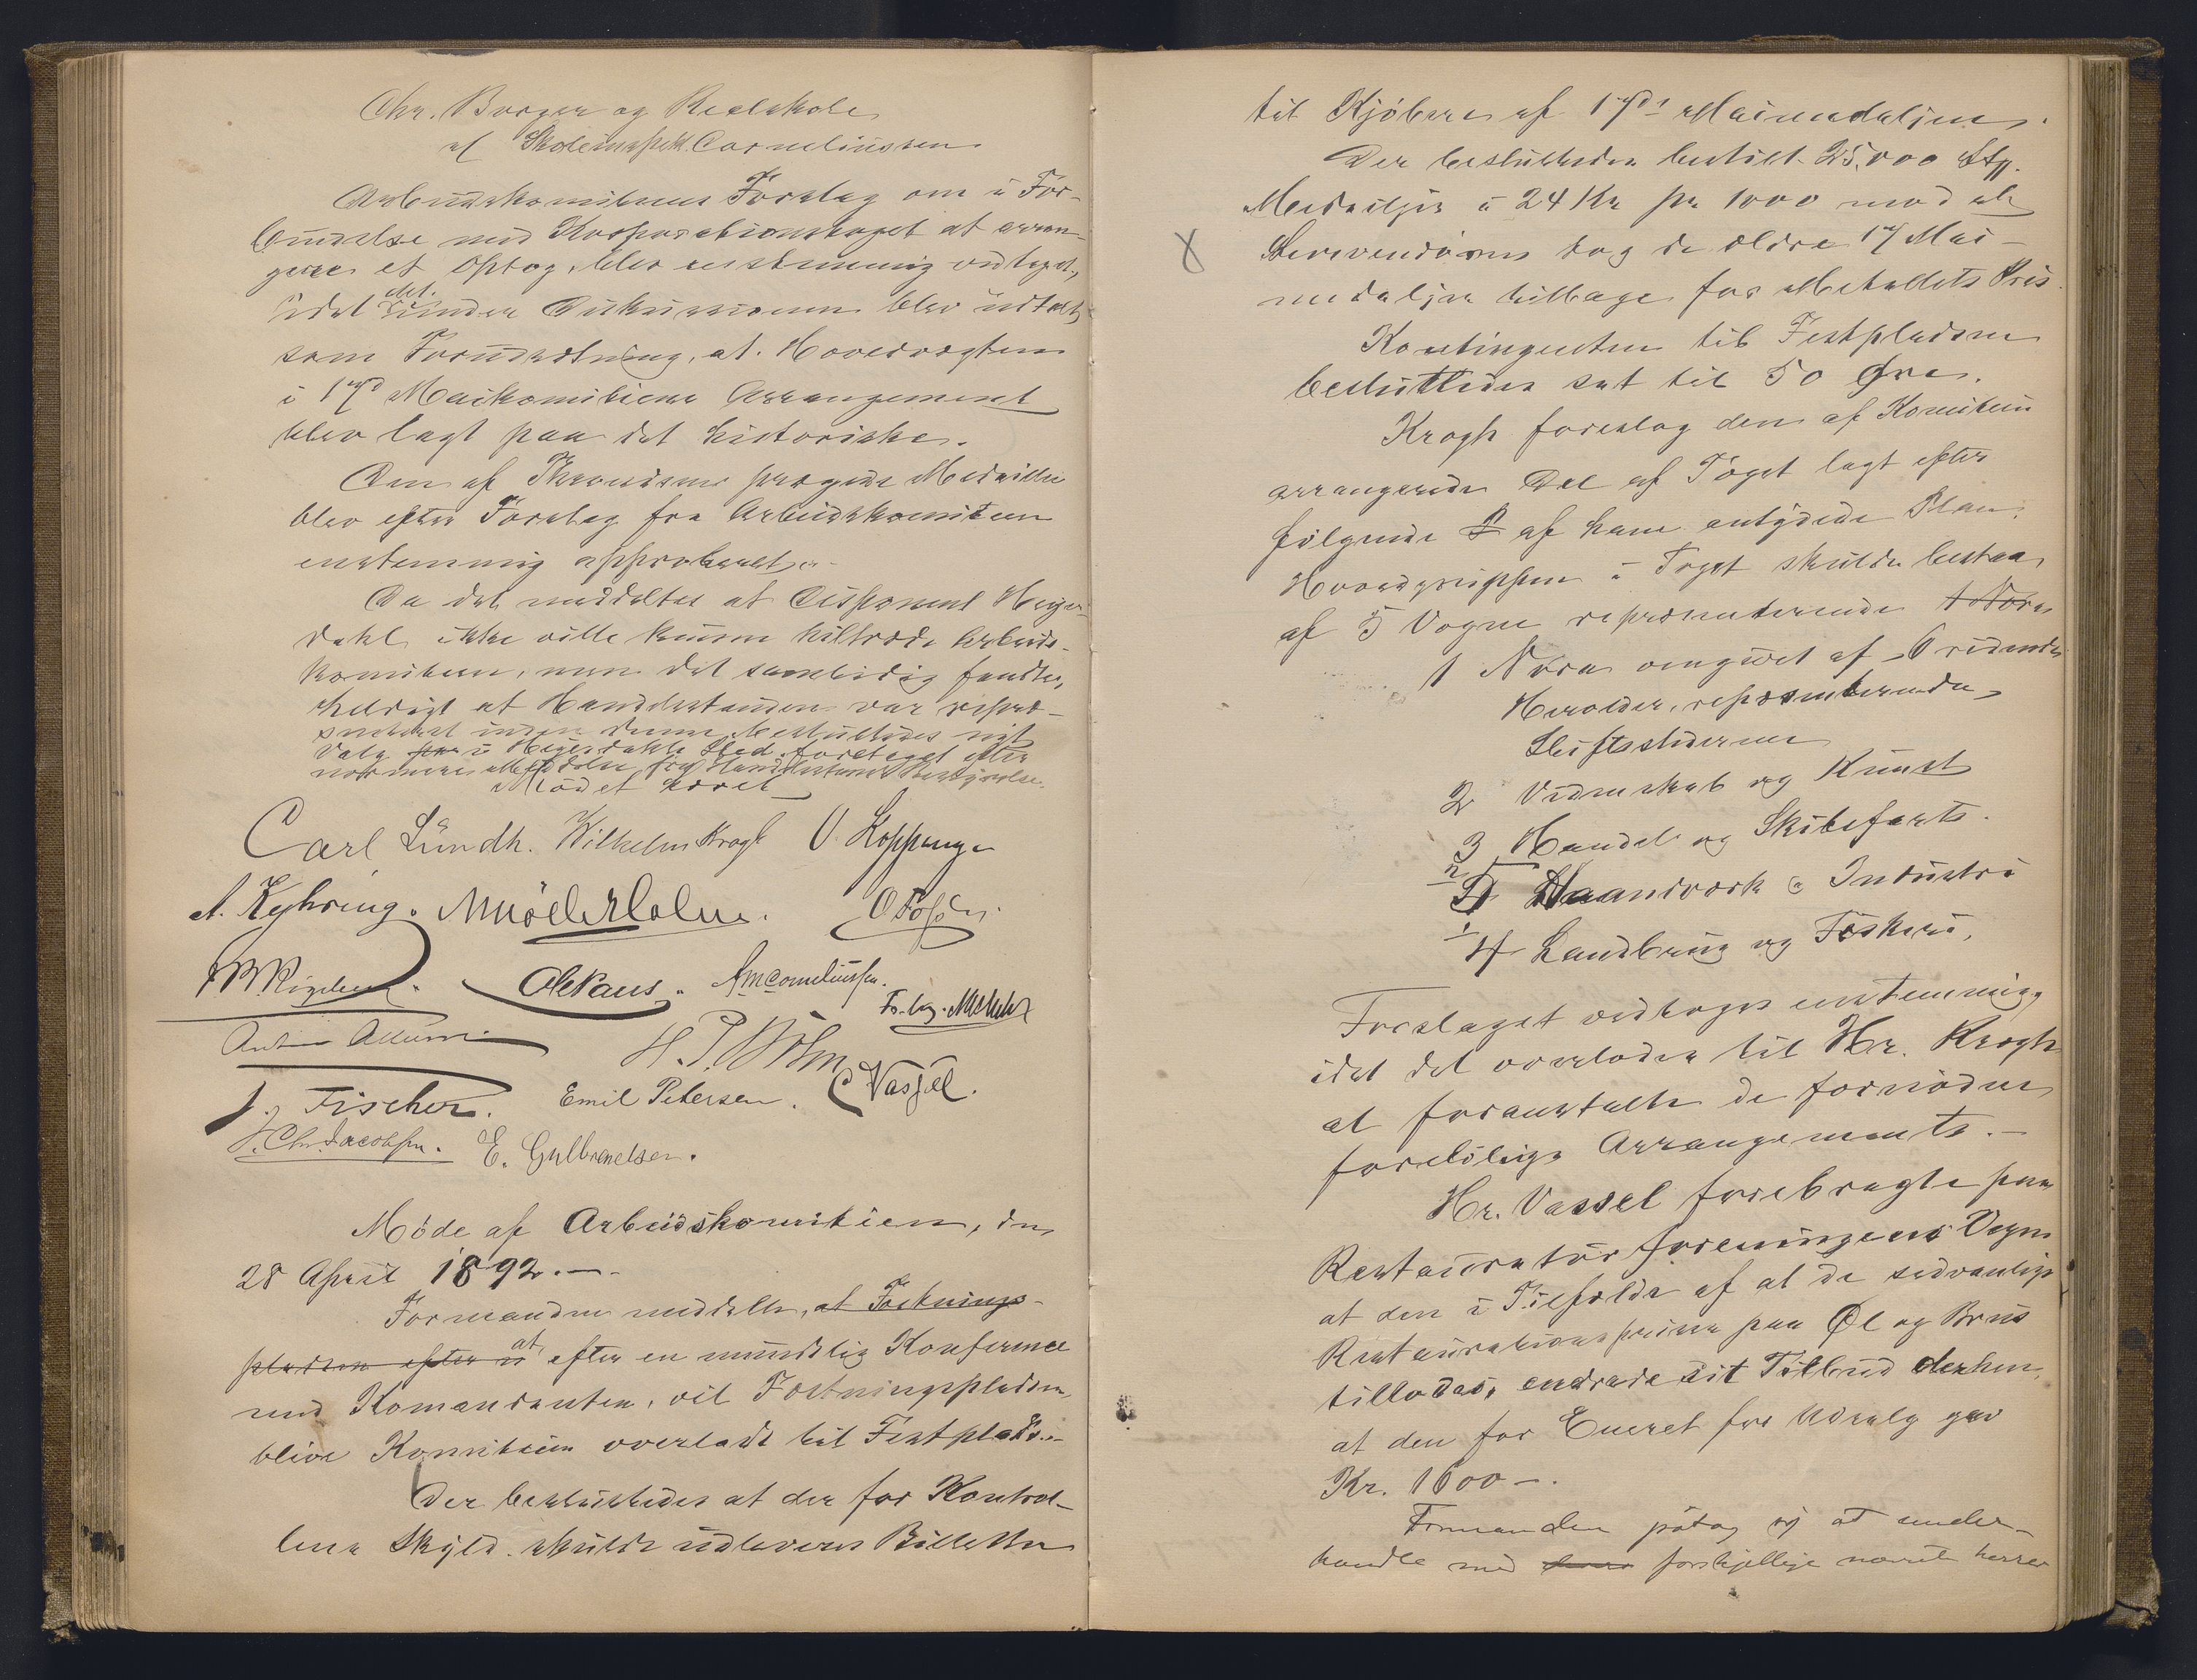 Chr. Borger og Realskole
af Skoleinspekt. Corneliussen
Arbeidskomiteens Forslag om i For-
bindelse med Korporationstoget at arran-
gere et Optog, blev eenstemmig vedtaget,
idet det under Diskussionen blev udtalt
som Forudsætning, at Hovedvægten
i 17d Maikomiteens Arrangement
blev lagt paa det historiske.
Den af Throndsens prægede Medaille
blev efter Forslag fra Arbeidskomiteen
enstemmig approberet.
Da det meddeltes at Disponent Heyer-
dahl ikke vilde kunne tiltræde Arbeids-
komiteen, men det samtidig fandtes
heldigt at Handelsstanden var repræ-
senteret inden denne besluttedes nyt
Valg i Heyerdahls Sted foretaget efter
nærmere Meddelse fra Handelsstandens Bestyrelse.
Mødet hævet
Carl Lundh. Wilhelm Krogh O. Koppang
A. Kyhring. M Møllerholm.
Ole Paus. A M Corneliussen.
H. P. Holm
J. Fischer. Emil Petersen. C Vassel.
J. Chr. Jacobsen. E. Gulbrandsen.
Møde af Arbeidskomiteen, den
28 April 1892.—
Formanden meddelte, at Fæstnings-
pladsen efter at efter en mundtlig Konference
med Komandanten, vil Fæstningspladsen
blive Komiteen overladt til Festplads.-
Der besluttedes at der for Kontrol-
lens Skyld skulde udleveres Billetter
til Kjøbere af 17d Maimedaljen.
Der besluttedes bestilt 25,000 Stk.
Medailjer à 24 Kr pr 1000 mod at
Leverandøren tog de ældre 17 Mai-
medaljer tilbage for Metallets Pris.
Kontingenten til Festpladsen
besluttedes sat til 50 Øre.
Krogh foreslog den af Komiteen
arrangerede Del af Toget lagt efter
følgende af ham antydede Plan.
Hovedgruppen i Toget skulde bestaa
af 5 Vogne repræsenterende 1 Nora
1 Nora omgivet af 6 ridende
Herolder, repræsenterende
Stiftsstæderne
2 Videnskab og Kunst
3 Handel og Skibsfart.
5 Haandværk & Industri
4 Landbrug og Fiskeri,
Forslaget vedtoges enstemmig,
idet det overlodes til Hr. Krogh
at foranstalte de fornødne
foreløbige Arrangements.—
Hr. Vassel forebragte paa
Restauratørforeningens Vegne
at den i Tilfælde af at de sædvanlige
Restaurationspriser paa Øl og Brus
tillodes, endrede sit Tilbud derhen,
at den for Eneret for Udsalg gav
Kr. 1600—.
Formanden påtog sig at under-
handle med forskjellige nævnte herrer